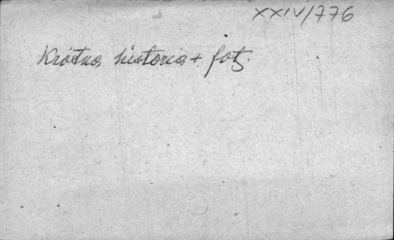 XXIV/776
Krótka historia + fot.